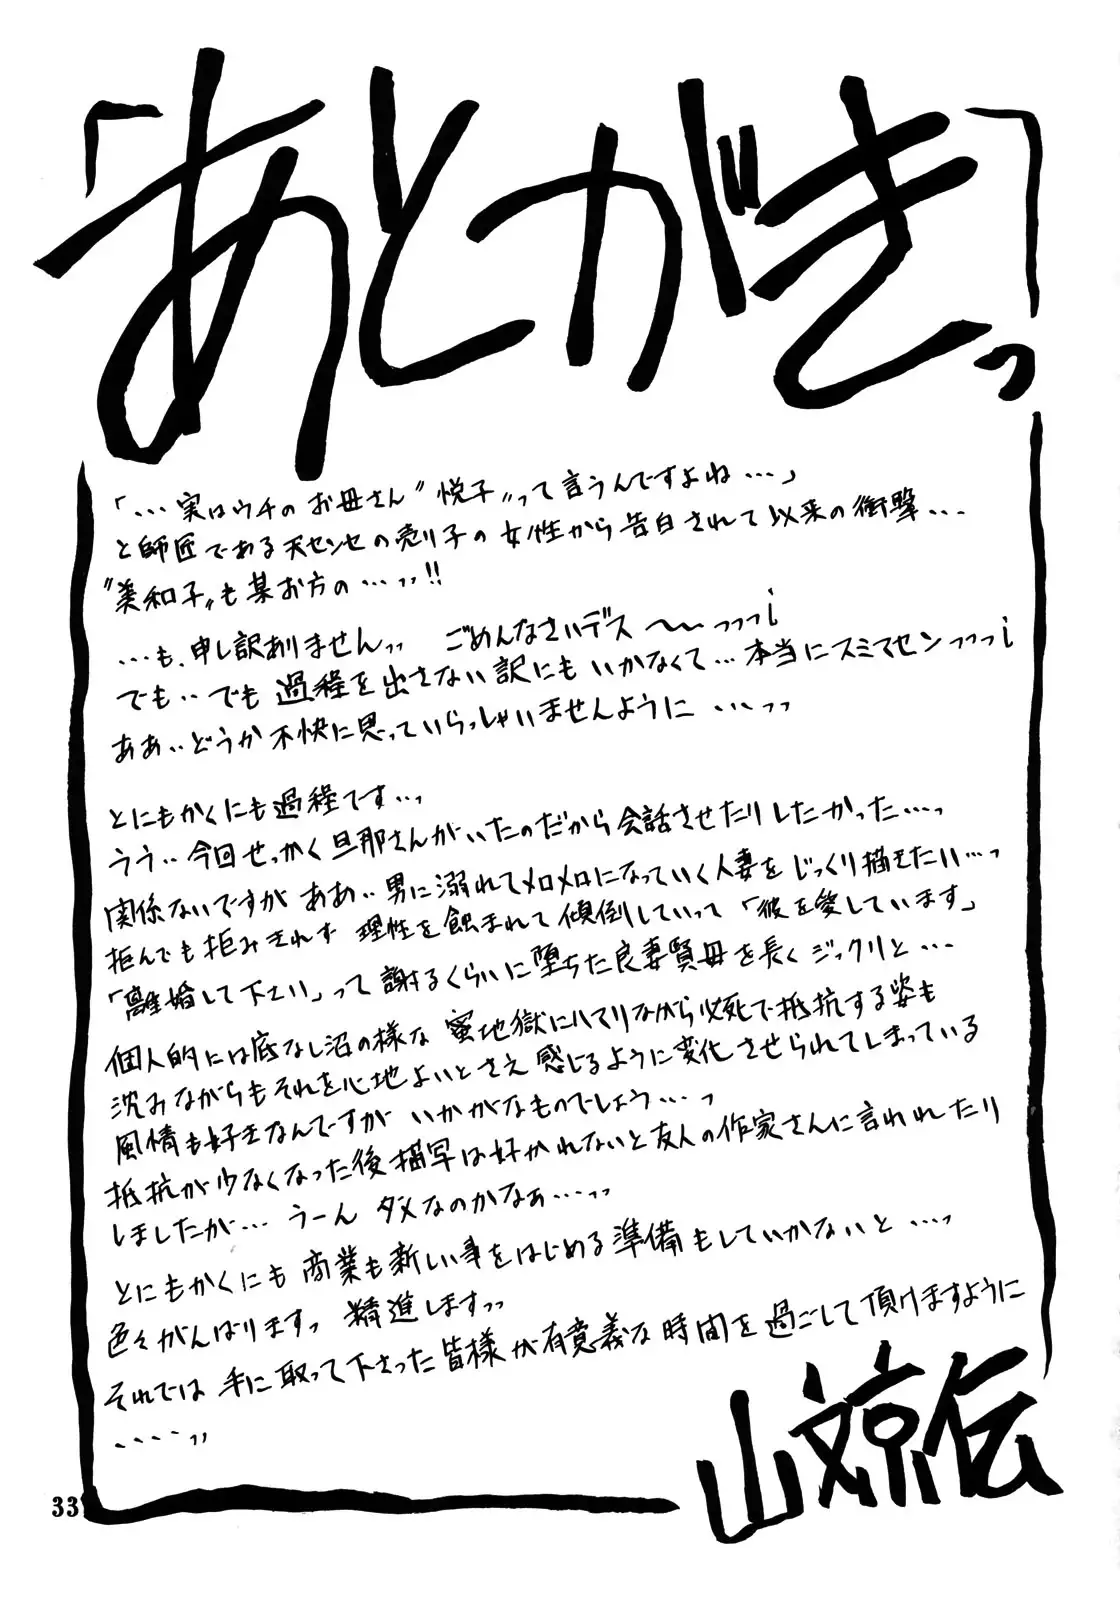 「あとがきっ」
「…実はウチのお母さん〝悦子〟って言うんですよね…」
と師匠である天センセの売り子の女性から告白されて以来の衝撃…
〝美和子〟も某お方の…ッッ!!
…も、申し訳ありませんッッ ごめんなさいデス〜〜ッッッ¡
でも‥でも過程を出さない訳にもいかなくて…本当にスミマセンッッッ¡
ああ‥どうか不快に思っていらっしゃいませんように…ッッ
とにもかくにも過程です…ッ
うう‥今回せっかく旦那さんがいたのだから会話させたりしたかった…ッ
関係ないですが ああ‥男に溺れてメロメロになっていく人妻をじっくり描きたい…っ
拒んでも拒みきれず 理性を蝕まれて傾倒していって「彼を愛しています」
「離婚して下さい」って謝るくらいに堕ちた良妻賢母を長くジックリと…
個人的には底なし沼の様な蜜地獄にハマりながら必死で抵抗する姿も
沈みながらもそれを心地よいとさえ感じるように変化させられてしまっている
風情も好きなんですが いかがなものでしょう…っ
抵抗が少なくなった後描写は好かれないと友人の作家さんに言われたり
しましたが… うーん ダメなのかなぁ…ッッ
とにもかくにも商業も新しい事をはじめる準備もしていかないと…ッ
色々がんばりますっ 精進しますッッ
それでは手に取って下さった皆様が有意義な時間を過ごして頂けますように
‥‥‥ッッ
山文京伝
33